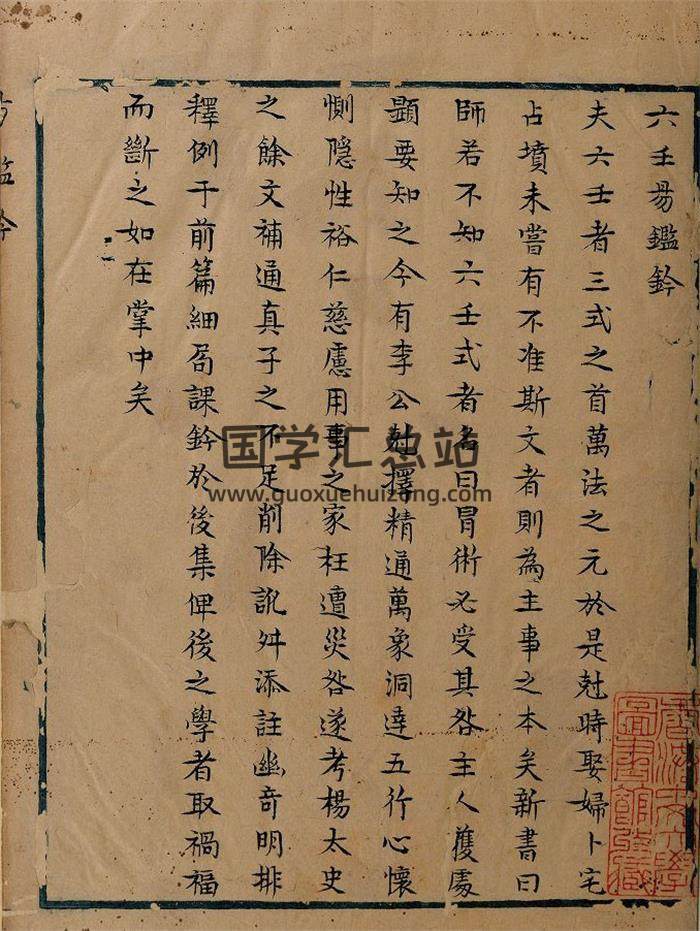 六壬昜鑑鈐
夫六壬者三式之首萬法之元於是尅時娶婦卜宅
占墳未嘗有不准斯文者則為主事之本矣新書曰
師若不知六壬式者名曰冒術必受其咎主人獲處
顕要知之今有李公尅擇精通萬象洞達五行心懷
惻隠性裕仁慈慮用事之家枉遭災咎遂考楊太史
之餘文補通真子之不足削除訛舛添註幽竒明排
釋例于前篇細局課鈐於後集俾後之學者取禍福
而斷之如在掌中矣
鑑鈐
国学汇总站
www.guoxuehuizong.com